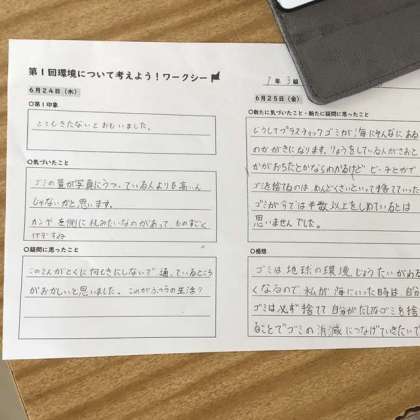 第1回環境について考えよう!ワークシー
1年 3組
6月24日（水）
○第1印象
とてもきたないとおもいました。
○気づいたこと
ゴミの量が写真にうつっている人よりも高いん
じゃないかと思います。
カンザ
左側に
みたいなのがあって ものすごく
○疑問に思ったこと
この人がとくに何も気にしないで 通っているところ
がおかしいと思いました。これがふつうの生活?
6月25日（金）
○新たに気づいたこと・新たに疑問に思ったこと
どうしてプラスチックゴミが海に
のかがきになります。りょうをしている人がさおと
かがおちたとかならわかるけど ビーチとかで
ゴミを捨てるのは、めんどくさいといって捨てていった
ゴミが今では半数以上をしめているとは
思いませんでした。
○感想
ゴミは地球の環境
じょうたいがわる
くなるので 私が海にいった時は 自分
ゴミは必ず捨てて 自分がだしてなゴミを捨
ることでゴミの消滅につなげていきたいで